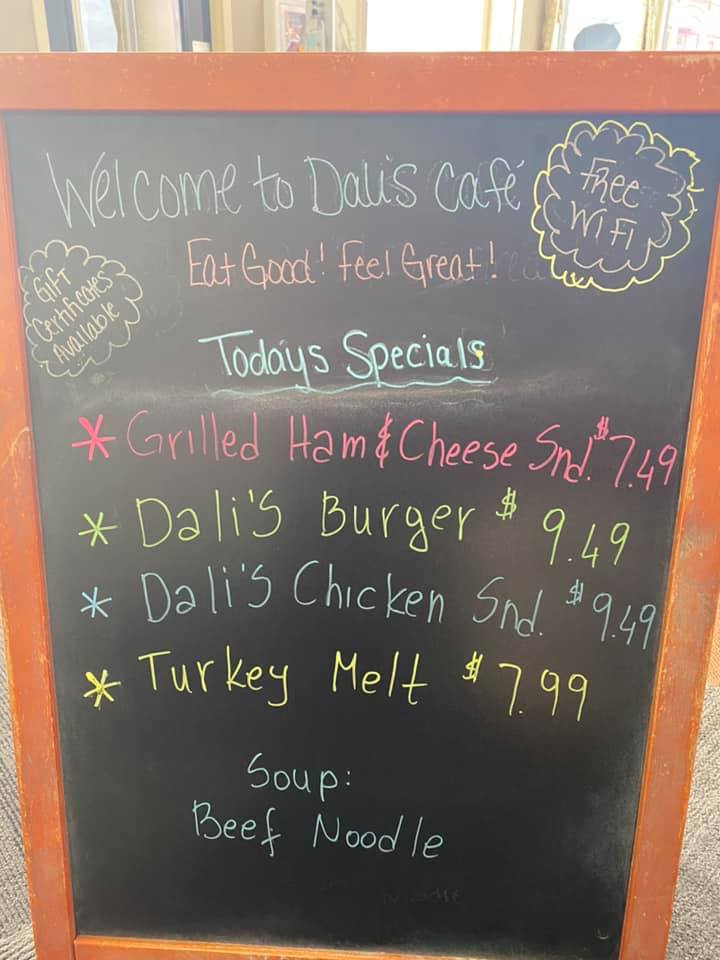 Welcome to Dali's Café
Free
WiFi
Eat Good! Feel Great!
Gift
Certificates
Available
Todays Specials
* Grilled Ham & Cheese Snd. $7.49
* Dali's Burger $9.49
* Dali's Chicken Snd. $9.49
* Turkey Melt $7.99
Soup:
Beef Noodle